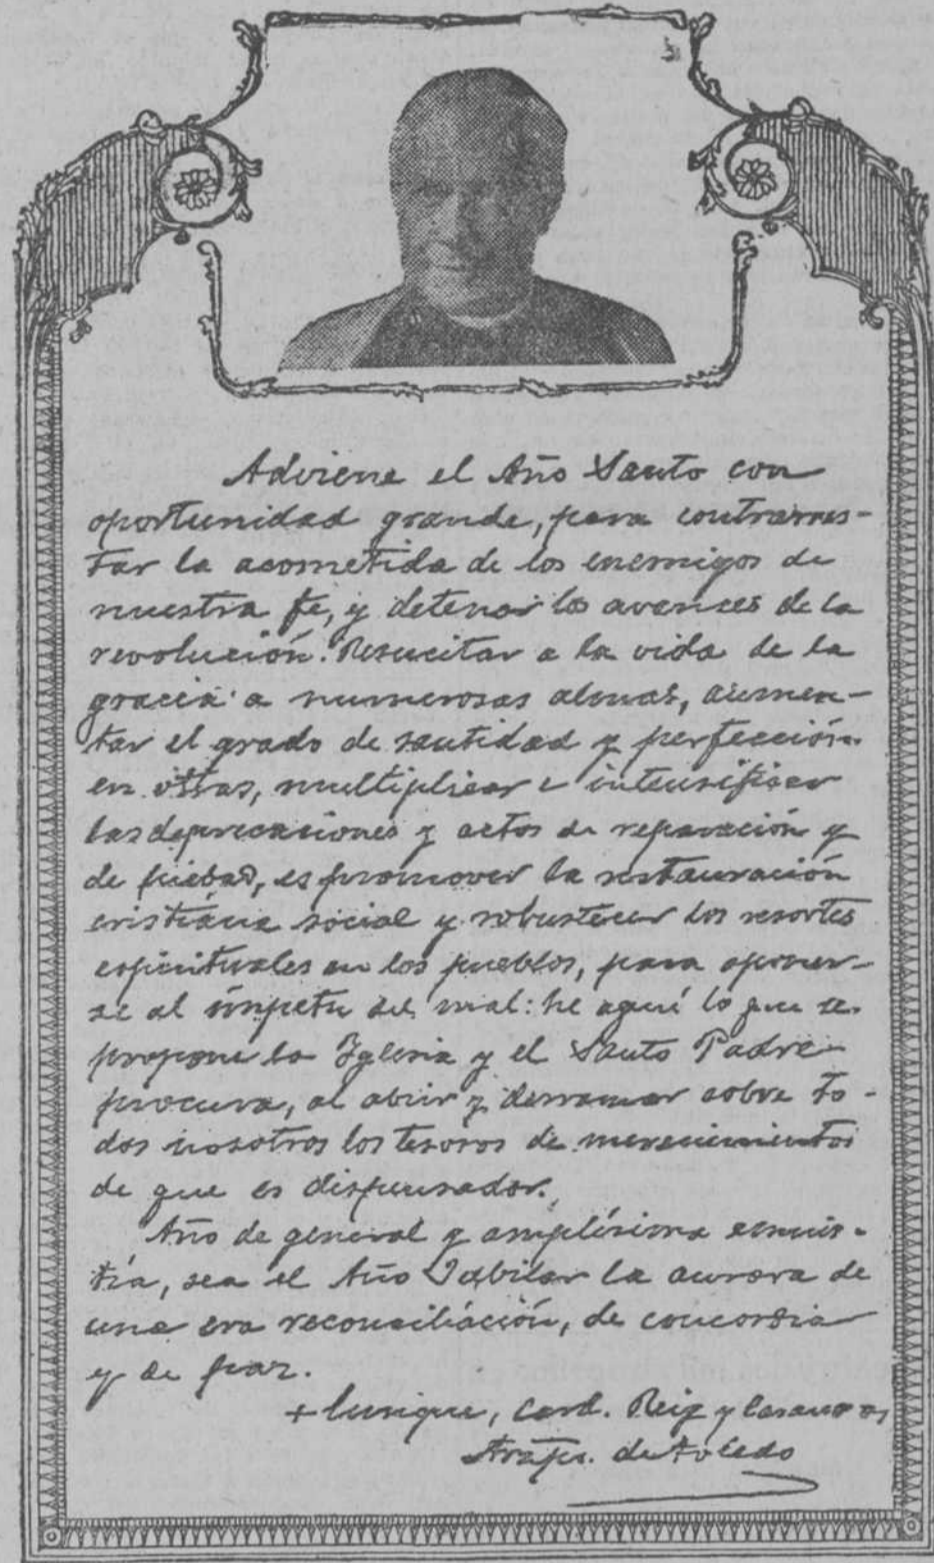 Adviene el Año Santo con
oportunidad grande, para contrarres-
tar la acometida de los enemigos de
nuestra fe, y detener los avances de la
revolución. Resucitar a la vida de la
gracia a numerosas almas, aumen-
tar el grado de santidad y perfección
en otras, multiplicar e intensificar
las deprecaciones y actos de reparación y
de piedad, es promover la restauración
cristiana social y robustecer los resortes
espirituales en los pueblos, para oponer-
se al ímpetu del mal: he aquí lo que se
propone la Iglesia y el Santo Padre
procura, al abrir y derramar sobre to-
dos nosotros los tesoros de merecimientos
de que es dispensador.
Año de general y amplísima amnis-
tía, sea el Año Jubilar la aurora de
una era reconciliación, de concordia
y de paz.
+ Enrique, Card. Reig y Casanova,
Arzpo. de Toledo